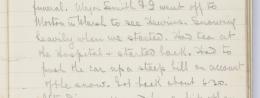 funeral. Major Smith & I went off to
Morton in Marsh to see Harrison. Snowing
heavily when we started. Had tea at
the Hospital & started back. Had to
push the car up a steep hill on account
of the snow. Got back about 6.30.